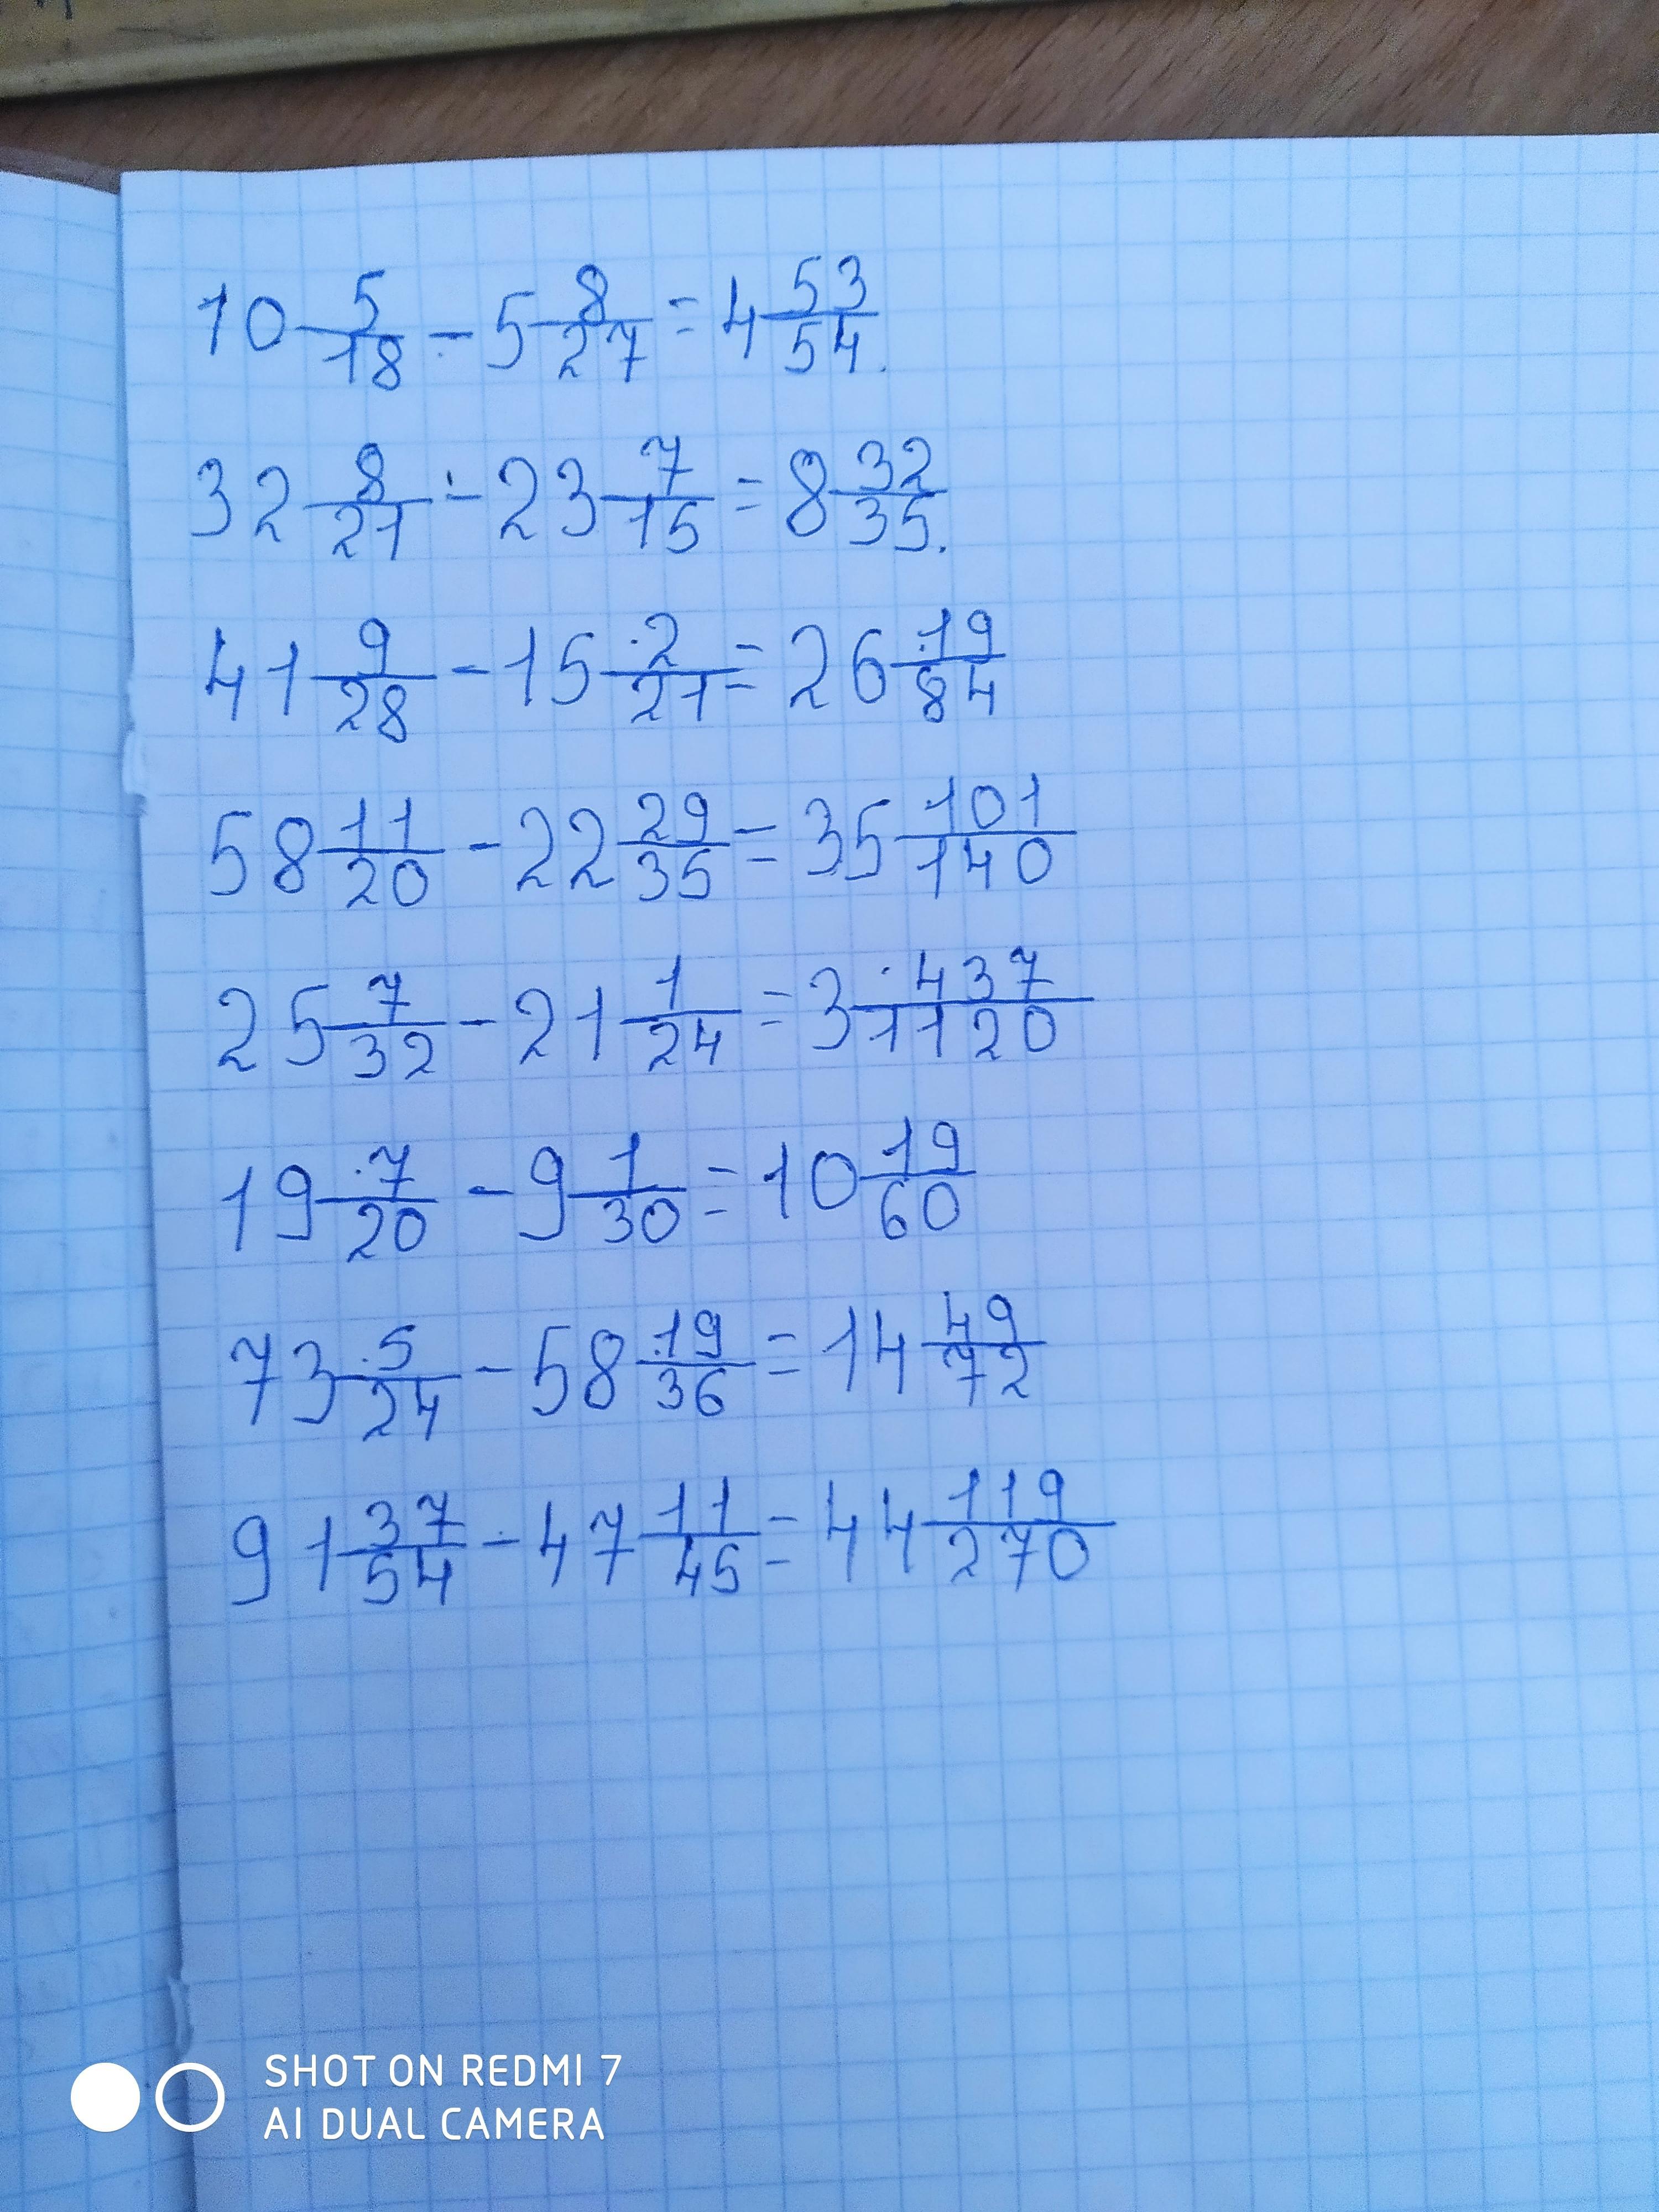 10 5/18 - 5 8/27 = 4 53/54.
32 8/21 - 23 7/15 = 8 32/35.
41 9/28 - 15 2/21 = 26 19/84
58 11/20 - 22 29/35 = 35 101/140
25 7/32 - 21 1/24 = 3 437/1120
19 7/20 - 9 1/30 = 10 19/60
73 5/24 - 58 19/36 = 14 49/72
91 37/54 - 47 11/45 = 44 119/270
SHOT ON REDMI 7
AI DUAL CAMERA